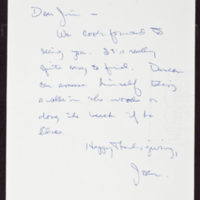 Dear Jim –
We look forward to
seeing you. It's really
quite easy to find. Duncan
can amuse himself taking
a walk in the woods or
down the beach if he
likes.
Happy Thanksgiving,
Joan